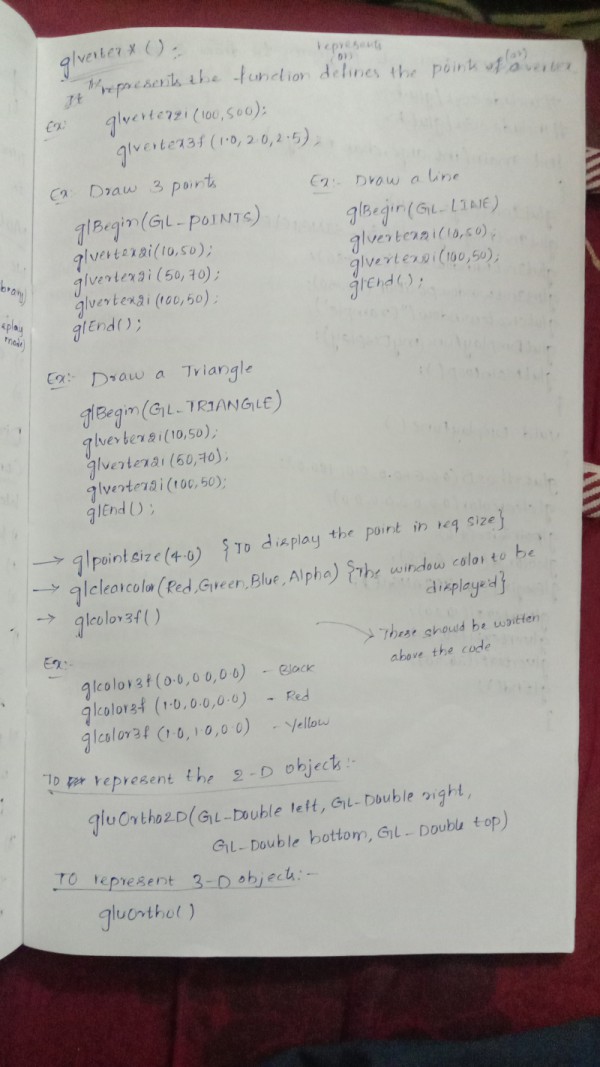 glvertex x ( ) :-
represents
(or)
It represents the function defines the point of (or) a vertex.
Ex: glvertex2i (100,500);
glvertex3f (1.0, 2.0, 2.5);
Ex: Draw 3 points
glBegin(GL_POINTS)
glvertex2i (10,50);
glvertex2i (50,70);
glvertex2i (100,50);
glEnd();
Ex:- Draw a line
glBegin(GL_LINE)
glvertex2i(10,50);
glvertex2i(100,50);
glEnd();
Ex:- Draw a Triangle
glBegin(GL_TRIANGLE)
glvertex2i(10,50);
glvertex2i(50,70);
glvertex2i(100,50);
glEnd();
→ glpointsize(4.0) {To display the point in req size}
→ glclearcolor(Red,Green,Blue,Alpha) {The window color to be
displayed}
→ glcolor3f()
→ These should be written
above the code
Ex:-
glcolor3f(0.0,0.0,0.0) - Black
glcolor3f (1.0,0.0,0.0) - Red
glcolor3f (1.0,1.0,0.0) - Yellow
To represent the 2-D objects:-
gluOrtho2D(GL_Double left, GL_Double right,
GL_Double bottom, GL_Double top)
To represent 3-D objects:-
gluortho()